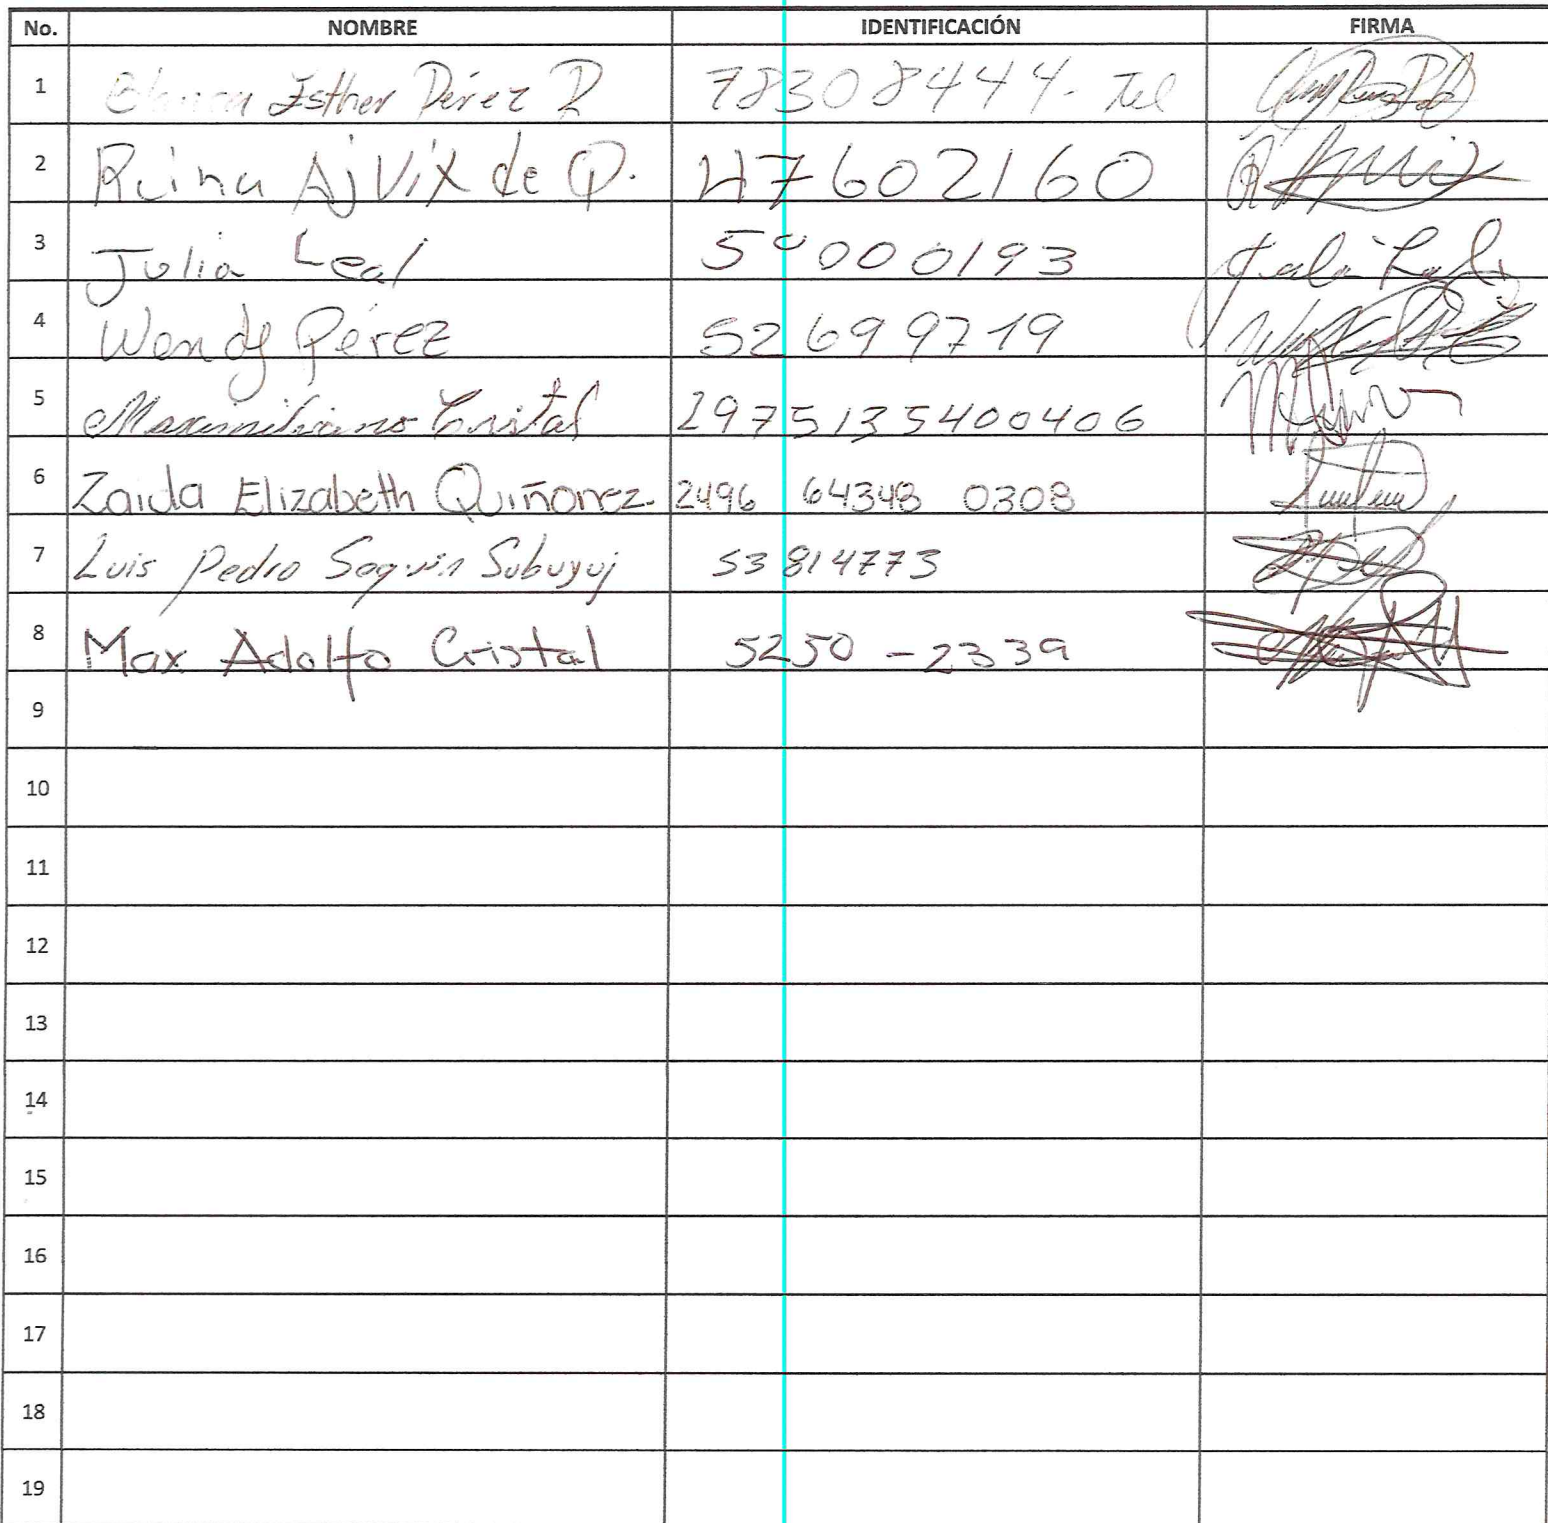 No. NOMBRE IDENTIFICACIÓN FIRMA
1 Esther Pérez R 78308444 - Tel
2 Reina Ajvix de Q. 47602160
3 Julia Leal 50000193
4 Wendy Pérez 52699719
5 Maximiliano Cristal 2975135400406
6 Zaida Elizabeth Quiñonez. 2496 64348 0308
7 Luis Pedro Subuyuj 53814773
8 Max Adolfo Cristal 5250 - 2339
9
10
11
12
13
14
15
16
17
18
19